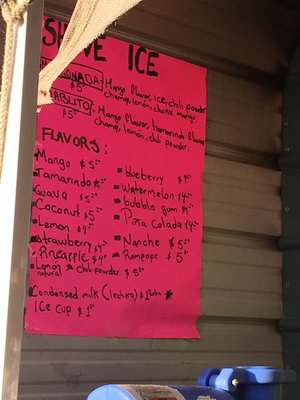 SHAVE ICE
MANGONADA:
Mango flavor, ice, chili powder
$5
chamoy, lemon, chunks mango.
DIABLITO:
Mango flavor, tamarindo flavor
$5
chamoy, lemon, chili powder.
FLAVORS:
Mango $5
Tamarindo $5
Guava $5
Coconut $5
Lemon $4
Strawberry $4
Pineapple $4
Lemon chili powder $5
natural
blueberry $4
Watermelon $4
bubble gum $4
Piña Colada $4
Nanche $5
Rompope $5
Condensed milk (lechera) $1
ICE CUP $1